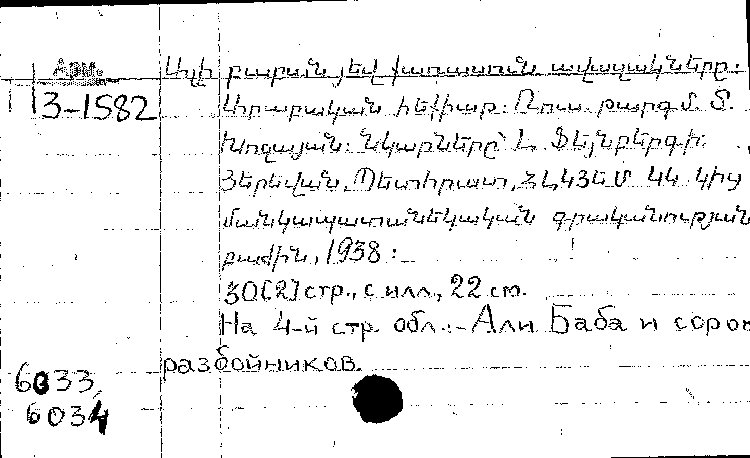 Арм.
3-1582
Ալի բաբան յեվ քառասուն ավազակները:
Արաբական հեքիաթ: Ռուս. թարգմ. Տ.
Խոզայան: Նկարները՝ Լ. Ֆեյնբերգի:
Յերեվան, Պետհրատ, ՀԼԿՅԵՄ ԿԿ կից
մանկապատանեկական գրականության
բաժին, 1938:
30[2] стр., с илл., 22 см.
На 4-й стр. обл.:- Али Баба и сорок
разбойников.
6033,
6034